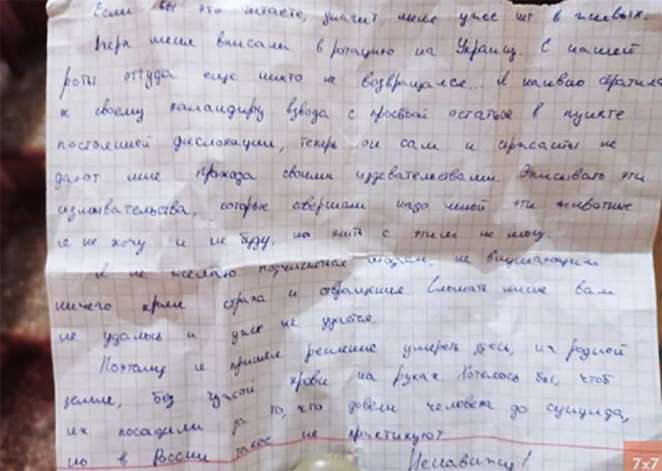 Если вы это читаете, значит меня уже нет в живых.
Вчера меня вписали в ротацию на Украину. С нашей
роты оттуда еще никто не возвращался... Я наивно обратился
к своему командиру взвода с просьбой остаться в пункте
постоянной дислокации, теперь он сам и сержанты не
дают мне прохода своими издевательствами. Описывать эти
измывательства, которые совершали надо мной эти животные
я не хочу и не буду, но жить с этим не могу.
Я не желаю подчиняться людям, не внушающим
ничего кроме страха и отвращения. Сломать меня вам
не удалось и уже не удастся.
Поэтому я принял решение умереть здесь, на родной
земле, без чужой крови на руках. Хотелось бы, чтоб
их посадили за то, что довели человека до суицида,
но в России такое не практикуют.
Ненавижу!
7x7